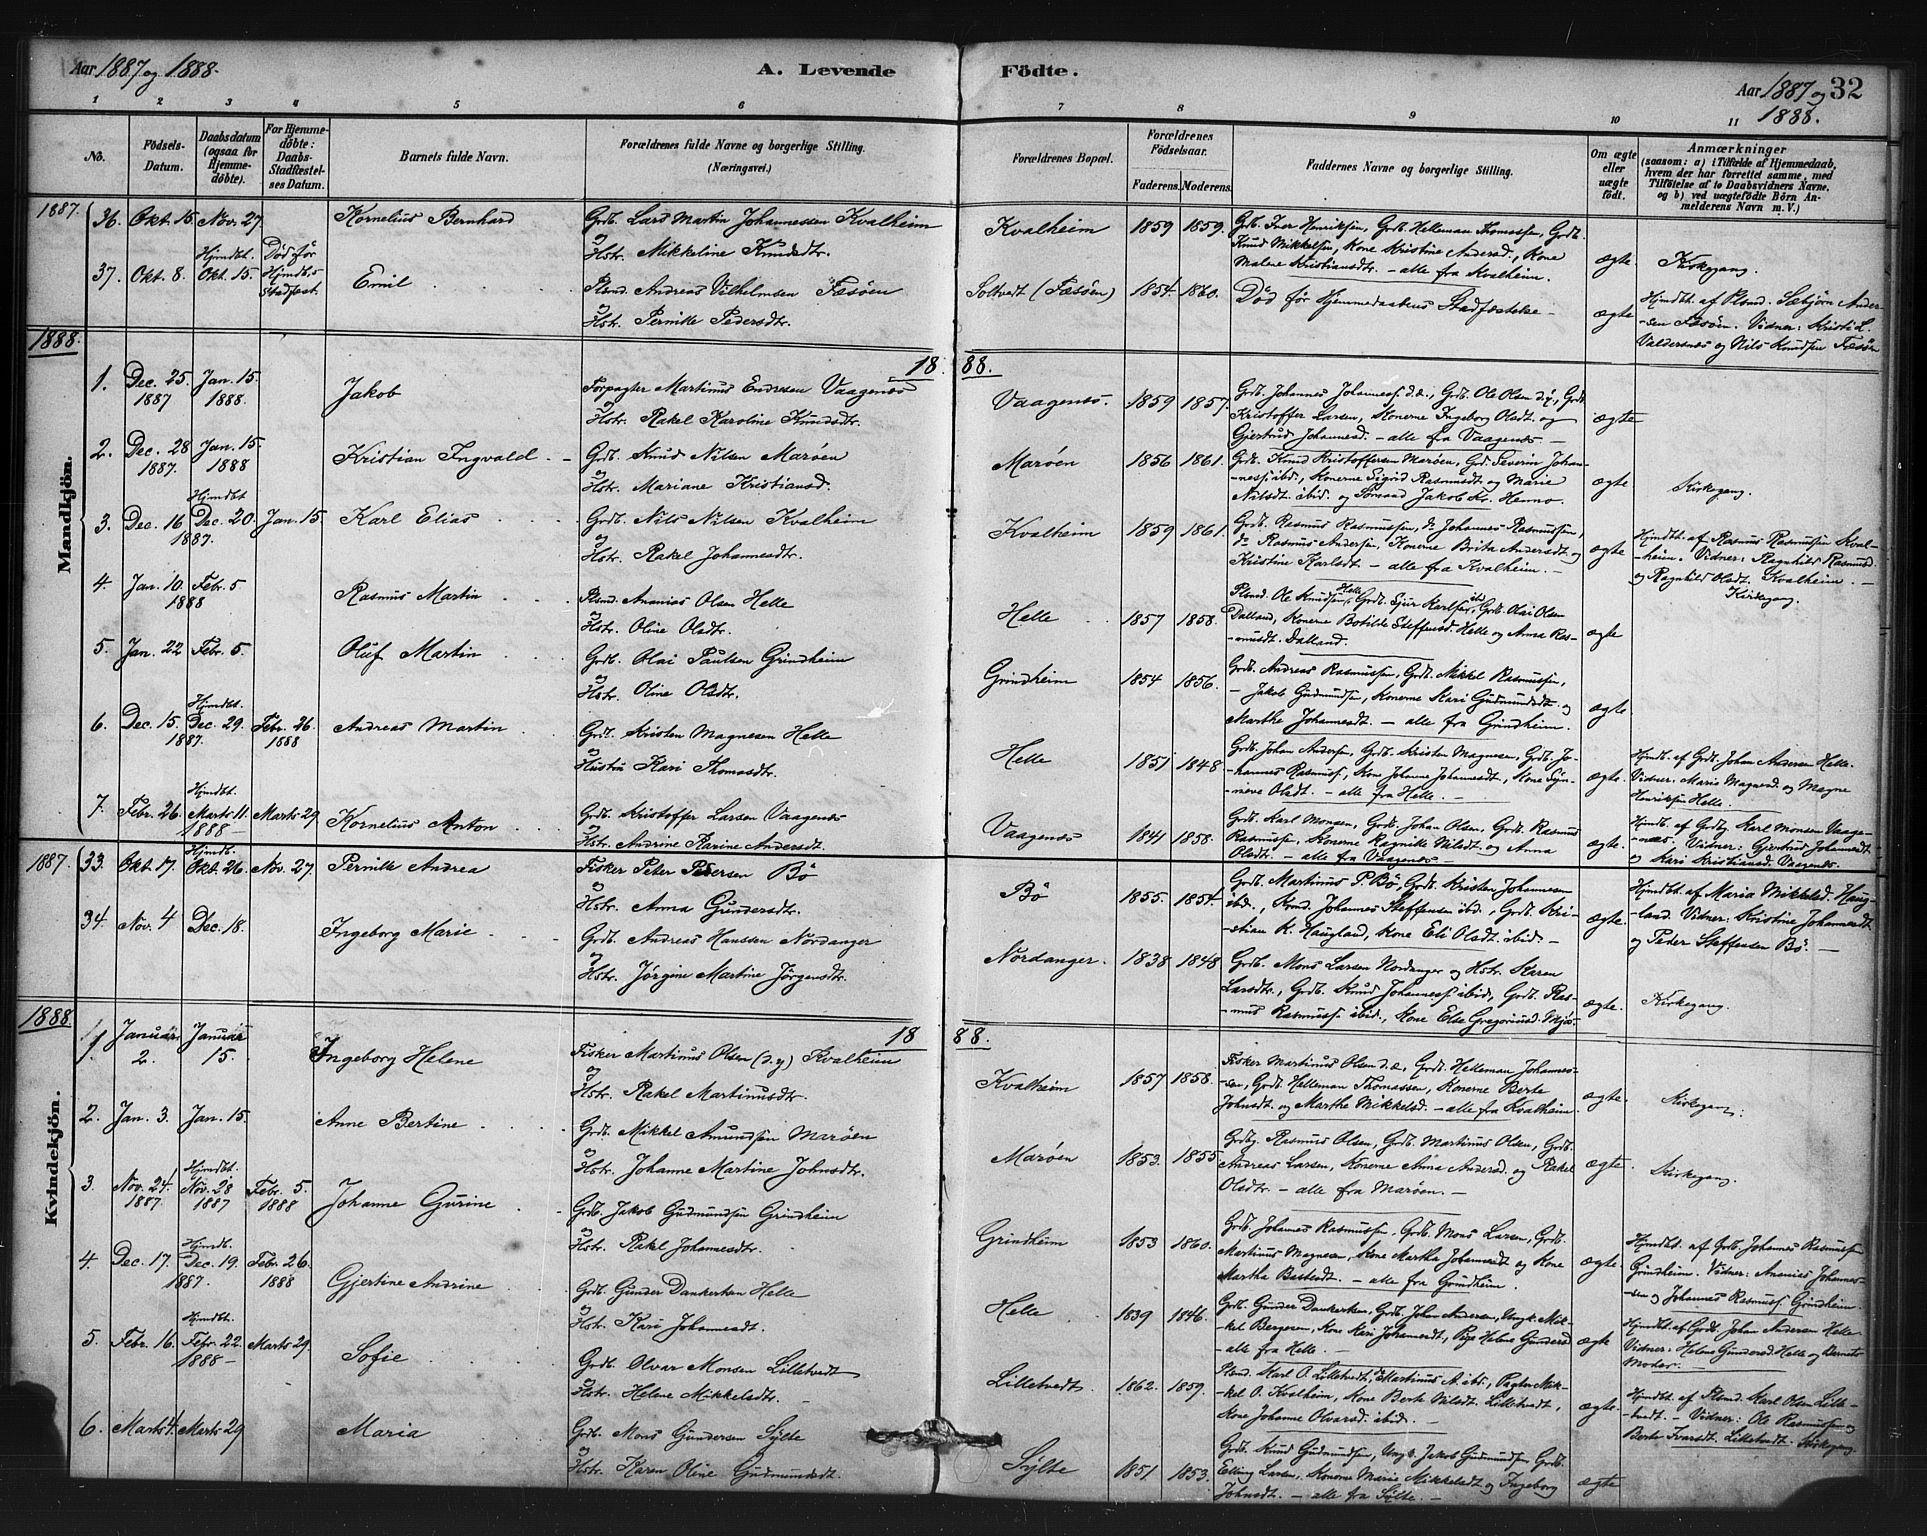 Aar 1887 og 1888.
A. Levende Födte.
Aar 1887 og 1888. 32
1 2 3 4 5 6 7 8 9 10 11
No.
Födsels-Datum.
Daabsdatum (ogsaa for Hjemme-döbte).
For Hjemme-döbte: Daabs-Stadfæstel-ses Datum.
Barnets fulde Navn.
Forældrenes fulde Navne og borgerlige Stilling. (Næringsvei.)
Forældrenes Bopæl.
Forældrenes Födselsaar.
Faderens. Moderens.
Faddernes Navne og borgerlige Stilling.
Om ægte eller uægte födt.
Anmærkninger
(saasom: a) i Tilfælde af Hjemmedaab, hvem der har forrettet samme, med Tilföielse af to Daabsvidners Navne, og b) ved uægtefödte Börn An-melderens Navn m. V.)
Mandkjön.
1887.
36. Okt. 15. Nov. 27. Kornelius Bernhard
Grdb. Lars Martin Johannessen Kvalheim
og Hstr. Mikkeline Knudsdtr.
Kvalheim 1859 1859.
Grdb. Iver Henriksen, Grdb. Helleman Thomassen, Grdb.
Knud Mikkelsen, Kone Kristine Andersd., Kone
Malene Kristiansdtr. – alle fra Kvalheim.
ægte. Kirkegang.
37. Okt. 8. Hjmdbt. Okt. 15. Död för Hjmdb.s Stadfæst. Emil
Plsmd. Andreas Vilhelmsen Fæsöen
og Hstr. Pernille Pedersdtr.
Soltvedt (Fæsöen) 1854. 1860.
Död för Hjemmedaabens Stadfæstelse –
ægte
Hjmdbt. af Plsmd. Sæbjörn Ander-
sen Fæsöen. Vidner: Kristi L.
Valdersnes og Nils Knudsen Fæsöen
1888.
1888.
1. Dec. 25. 1887 Jan. 15. 1888. Jakob
Forpagter Martinus Endresen Vaagenes
og Hstr. Rakel Karoline Knudsdtr.
Vaagenes. 1859 1857.
Grdb. Johannes Johanness. d.æ., Grdb. Ole Olsen d.y., Grdb.
Kristoffer Larsen, Konerne Ingeborg Olsdt. og
Gjertrud Johannesd. – alle fra Vaagenes –
ægte
2. Dec. 28 1887. Jan. 15. 1888 Kristian Ingvald
Grdb. Knud Nilsen Maröen
og Hstr. Mariane Kristiansd.
Maröen 1856 1861.
Grdb. Knud Kristoffersen Maröen, Grd. Severin Johan-
nes. ibd., Konerne Sigrid Rasmusdt og Marie
Nilsdt ibid. og Sömand Jakob K. Henno.
ægte Kirkegang.
3. Dec. 16 1887. Hjmdbt Dec. 20. Jan. 15 Karl Elias
Grdb. Nils Nilsen Kvalheim
og Hstr. Rakel Johannesdtr.
Kvalheim 1859 1861.
Grdb. Rasmus Rasmussen, do Johannes Rasmussen,
do Rasmus Andersen, Konerne Brita Andersdt og
Kristine Karlsdt – alle fra Kvalheim. –
ægte
Hjmdbt. af Rasmus Rasmussen Kval-
heim. Vidner: Ragnhild Rasmusd.
og Ragnhild Olsdt. Kvalheim. –
Kirkegang.
4. Jan. 10. 1888 Febr. 5 Rasmus Martin
Plsmd. Ananias Olsen Helle
og Hstr. Oline Olsdtr.
Helle 1857 1858.
Plsmd Ole Knudsen Helle, Grdb. Sjur Karlsen ibd, Grdb. Olai Olsen
Dalland, Konerne Botilde Steffensd. Helle og Anna Ras-
musdt. Dalland.
ægte
5. Jan. 22 Febr. 5. Oluf Martin
Grdb. Olai Paulsen Grindheim
og Hstr. Oline Olsdtr.
Grindheim 1854 1856.
Grdb. Andreas Rasmussen, Grdb. Mikkel Rasmussen,
– Jakob Gudmundsen, Konerne Kari Gudmundsdt og
Marthe Johannesdt. – alle fra Grindheim.
ægte.
6. Dec. 15. 1887. Hjmdbt. Dec. 29. Febr. 26. 1888 Andreas Martin
Grdb. Kristen Magnesen Helle
og Hustru Kari Thomasdtr.
Helle 1851 1848
Grdb. Johan Andersen, Grdb. Kristen Magnesen, Grdb. Jo-
hannes Rasmuss., Kone Johanne Johannesdt., Kone Syn-
neve Olsdt. – alle fra Helle. –
ægte.
Hjmdb. af Grdb. Johan Andersen Helle.
Vidner: Marie Magnesd. og Magne
Henriksen Helle.
7. Febr. 26. Hjmdbt. Marts 11. 1888 – Marts 29 Kornelius Anton
Grdb. Kristoffer Larsen Vaagenes
og Hstr. Andrine Karine Andersdt.
Vaagenes 1841 1858.
Grdb. Karl Monsen, Grdb. Johan Olsen, Grdb. Rasmus
Rasmussen, Konerne Ragnilde Nilsdt. og Anna
Olsdt. – alle fra Vaagenes –
ægte.
Hjmdbt. af Grdbg. Karl Monsen Vaage-
næs. Vidner: Gjertrud Johannesdt
og Kari Kristiansd. Vaagenes.
Kvindekjön.
1887.
33. Okt. 17. Hjmdb. Okt. 26. Nov. 27. Pernille Andrea
Fisker Peter Pedersen Bö
og Hstr. Anna Gundersdtr.
Bö 1855. 1854.
Grdb. Martinus P. Bö, Grdb. Kristen Johannesen
ibid., Johannes Steffensen ibid., Grdb. Kri-
stian K. Haugland, Kone Eli Olsdt. ibid. –
ægte
Hjmdbt. af Maria Mikkelsd. Haug-
land. Vidner: Kristine Johannesdt
og Peder Steffensen Bö. –
34. Nov. 4 Dec. 18. Ingeborg Marie
Grdb. Andreas Hanssen Nordanger
og Hstr. Jörgine Martine Jörgensdtr.
Nordanger. 1838 1848
Grdb. Mons Larsen Nordanger og Hstr. Karen
Larsdtr., Grdb. Knud Johanness. ibid, Grdb. Ras-
mus Rasmuss. ibid., Kone Else Gregoriusd. Mjös.
ægte. Kirkegang.
1888.
1888.
1. Januar 2. Januar 15. Ingeborg Helene
Fisker Martinus Olsen (d.y.) Kvalheim
og Hstr. Rakel Martinusdtr.
Kvalheim 1857 1858.
Fisker Martinus Olsen d.æ., Grdb. Helleman Johannes-
sen, Grdb. Helleman Thomassen, Konerne Berte
Johnsdt. og Marthe Mikkelsd. – alle fra Kvalheim.
ægte. Kirkegang.
2. Jan. 3. Jan. 15. Anne Bertine
Grdb. Mikkel Amundsen Maröen
og Hstr. Johanne Martine Johnsdtr.
Maröen 1853. 1855
Grdbg. Rasmus Olsen, Grdb. Martinus Olsen, Grdb.
Andreas Larsen, Konerne Anna Andersd. og Rakel
Olsdtr. – alle fra Maröen. –
ægte. Kirkegang.
3. Nov. 24. 1887. Hjmdbt. Nov. 28 1887 Febr. 5. 1888 Johanne Gurine
Grdb. Jakob Gudmundsen Grindheim
og Hstr. Rakel Johannesdtr.
Grindheim 1853 1860.
Grdb. Johannes Rasmussen, Grdb. Mons Larsen, Grdb.
Martinus Magnesen, Kone Martha Johannesdt og Kone
Martha Bastesdt. – alle fra Grindheim.
ægte.
Hjmdbt. af Grdb. Johannes Rasmussen
Grindheim. Vidner: Ananias Johannes-
sen og Johannes Rasmuss. Grindheim.
4. Dec. 17. Hjmdb. Dec. 19. 1887. Febr. 26. 1888 Gjertine Andrine
Grdb. Gunder Dankertsen Helle
og Hstr. Kari Johannesdt.
Helle 1839 1846.
Grdb. Gunder Dankertsen, Grdb. Johan Andersen, Ungk. Mik-
kel Bergesen, Kone Kari Johannesdt., Pige Helene Gundersd
– alle fra Helle. –
ægte
Hjmdbt. af Grdb. Johan Andersen Helle
Vidner: Helene Gundersd. Helle og Barnets
Moder. –
5. Febr. 16. Hjmdbt. Febr. 22. 1888 – Marts 29. Sofie
Grdb. Olvar Monsen Lilletvedt
og Hstr. Helene Mikkelsdtr.
Lilletvedt 1862. 1859.
Plsmd. Karl O. Lilletvedt, Martinus A. ibd., Pagter Mik-
kel O. Kvalheim, Kone Berte Nilsdt. Lilletvedt,
Kone Johanne Olvarsd. ibid. –
ægte.
Hjmdbt. af Plsmd. Karl Olsen Lille-
tvedt. – Vidner: Ole Rasmussen og
Berte Ivarsdt. Lilletvedt. Kirkegang.
6. Marts 4. Marts 29 Maria
Grdb. Mons Gundersen Sylte
og Hstr. Karen Oline Gudmundsdt.
Sylte 1851 1853.
Grdb. Knud Gudmundsen, Ungk. Jakob Gudmundsen, Grdb.
Elling Larsen, Konerne Marie Mikkelsdt og Ingeborg
Johnsdt. – alle fra Sylte. –
ægte